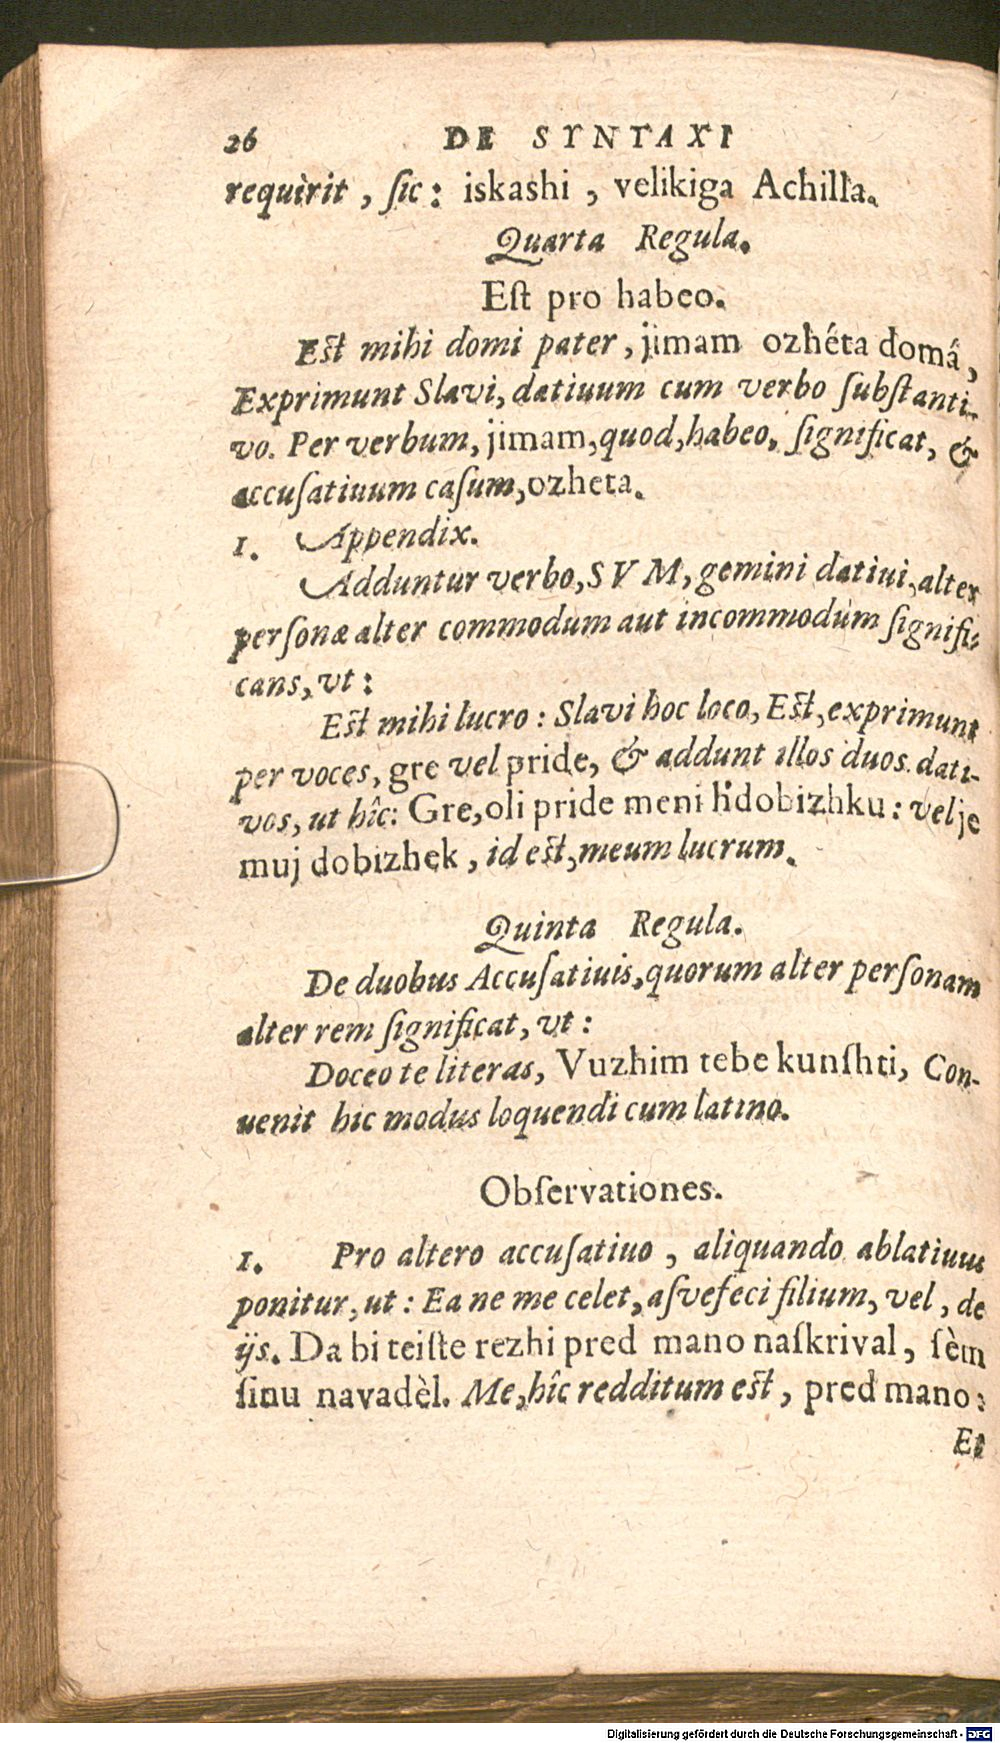 26 DE SYNTAXI
requirit, ſic: iskashi, velikiga Achilla.
Quarta Regula.
Eſt pro habeo.
Eſt mihi domi pater, jimam ozhéta domá,
Exprimunt Slavi, datiuum cum verbo ſubſtanti-
vo. Per verbum, jimam, quod, habeo, ſignificat, &
accuſatiuum caſum, ozheta.
1. Appendix.
Adduntur verbo, SVM, gemini datiui, alter
perſonæ alter commodum aut incommodum ſignifi-
cans, vt:
Eſt mihi lucro: Slavi hoc loco, Eſt, exprimunt
per voces, gre vel pride, & addunt illos duos dati-
vos, ut hîc: Gre, oli pride meni h'dobizhku: vel je
muj dobizhek, id eſt, meum lucrum.
Quinta Regula.
De duobus Accuſatiuis, quorum alter perſonam
alter rem ſignificat, vt:
Doceo te literas, Vuzhim tebe kunſhti, Con-
uenit hic modus loquendi cum latino.
Obſervationes.
1. Pro altero accuſatiuo, aliquando ablatiuus
ponitur, ut: Ea ne me celet, aſvefeci filium, vel, de
ijs. Da bi teiſte rezhi pred mano naſkrival, ſèm
ſinu navadèl. Me, hîc redditum eſt, pred mano:
Et
Digitalisierung gefördert durch die Deutsche Forschungsgemeinschaft - DFG